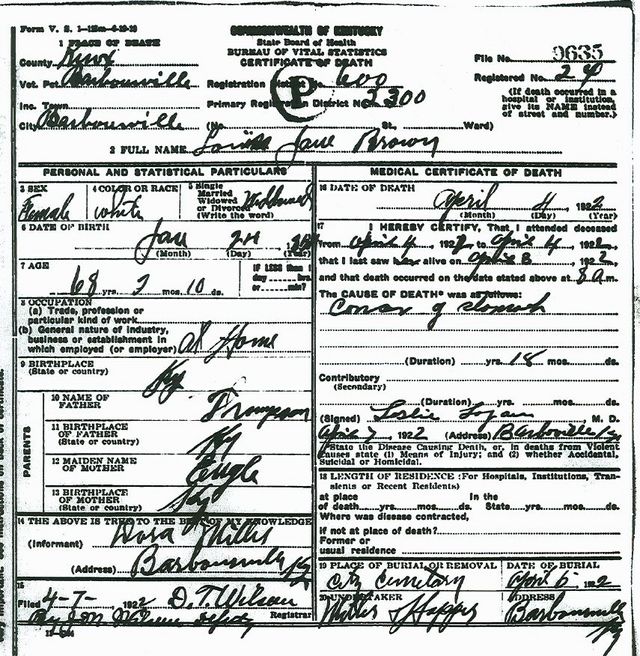 Form V. S. 1-
COMMONWEALTH OF KENTUCKY
State Board of Health
BUREAU OF VITAL STATISTICS
CERTIFICATE OF DEATH
1 PLACE OF DEATH
County Knox
File No. 9635
Vot. Pct. Barbourville
Registration District No. 600
Registered No. 24
Inc. Town
Primary Registration District No. 2300
(If death occurred in a
hospital or institution,
give its NAME instead
of street and number.)
City Barbourville
(No. St., Ward)
2 FULL NAME Jane Brown
P
PERSONAL AND STATISTICAL PARTICULARS
3 SEX
Female
4 COLOR OR RACE
white
5 Single
Married
Widowed
or Divorced
(Write the word)
6 DATE OF BIRTH
(Month) (Day) (Year)
7 AGE
68 yrs. 2 mos. 10 ds.
IF LESS than 1
day hrs.
or min.?
8 OCCUPATION
(a) Trade, profession or
particular kind of work
(b) General nature of industry,
business or establishment in
which employed (or employer) at Home
9 BIRTHPLACE
(State or country)
Ky
PARENTS
10 NAME OF
FATHER
11 BIRTHPLACE
OF FATHER
(State or country)
Ky
12 MAIDEN NAME
OF MOTHER
Engle
13 BIRTHPLACE
OF MOTHER
(State or country)
Ky
14 THE ABOVE IS TRUE TO THE BEST OF MY KNOWLEDGE
(Informant) Dora Miller
(Address) Barbourville Ky
15
Filed 4-7- 1922 D.T. Wilson
Registrar
MEDICAL CERTIFICATE OF DEATH
16 DATE OF DEATH
April 4 1922
(Month) (Day) (Year)
17 I HEREBY CERTIFY, That I attended deceased
from April 4 1922 to April 4 1922
that I last saw her alive on April 3, 1922,
and that death occurred on the date stated above at 8 a m.
The CAUSE OF DEATH* was as follows:
(Duration) yrs. 18 mos. ds.
Contributory
(Secondary)
(Duration) yrs. mos. ds.
(Signed) Leslie Logan M. D.
April 7, 1922 (Address) Barbourville Ky
*State the Disease Causing Death, or, in deaths from Violent
Causes state (1) Means of Injury; and (2) whether Accidental,
Suicidal or Homicidal.
18 LENGTH OF RESIDENCE (For Hospitals, Institutions, Tran-
sients or Recent Residents)
at place In the
of death yrs. mos. ds. State yrs. mos. ds.
Where was disease contracted,
if not at place of death?
Former or
usual residence
19 PLACE OF BURIAL OR REMOVAL
City Cemetary
DATE OF BURIAL
April 6 1922
20 UNDERTAKER
ADDRESS
Barbourville
Ky